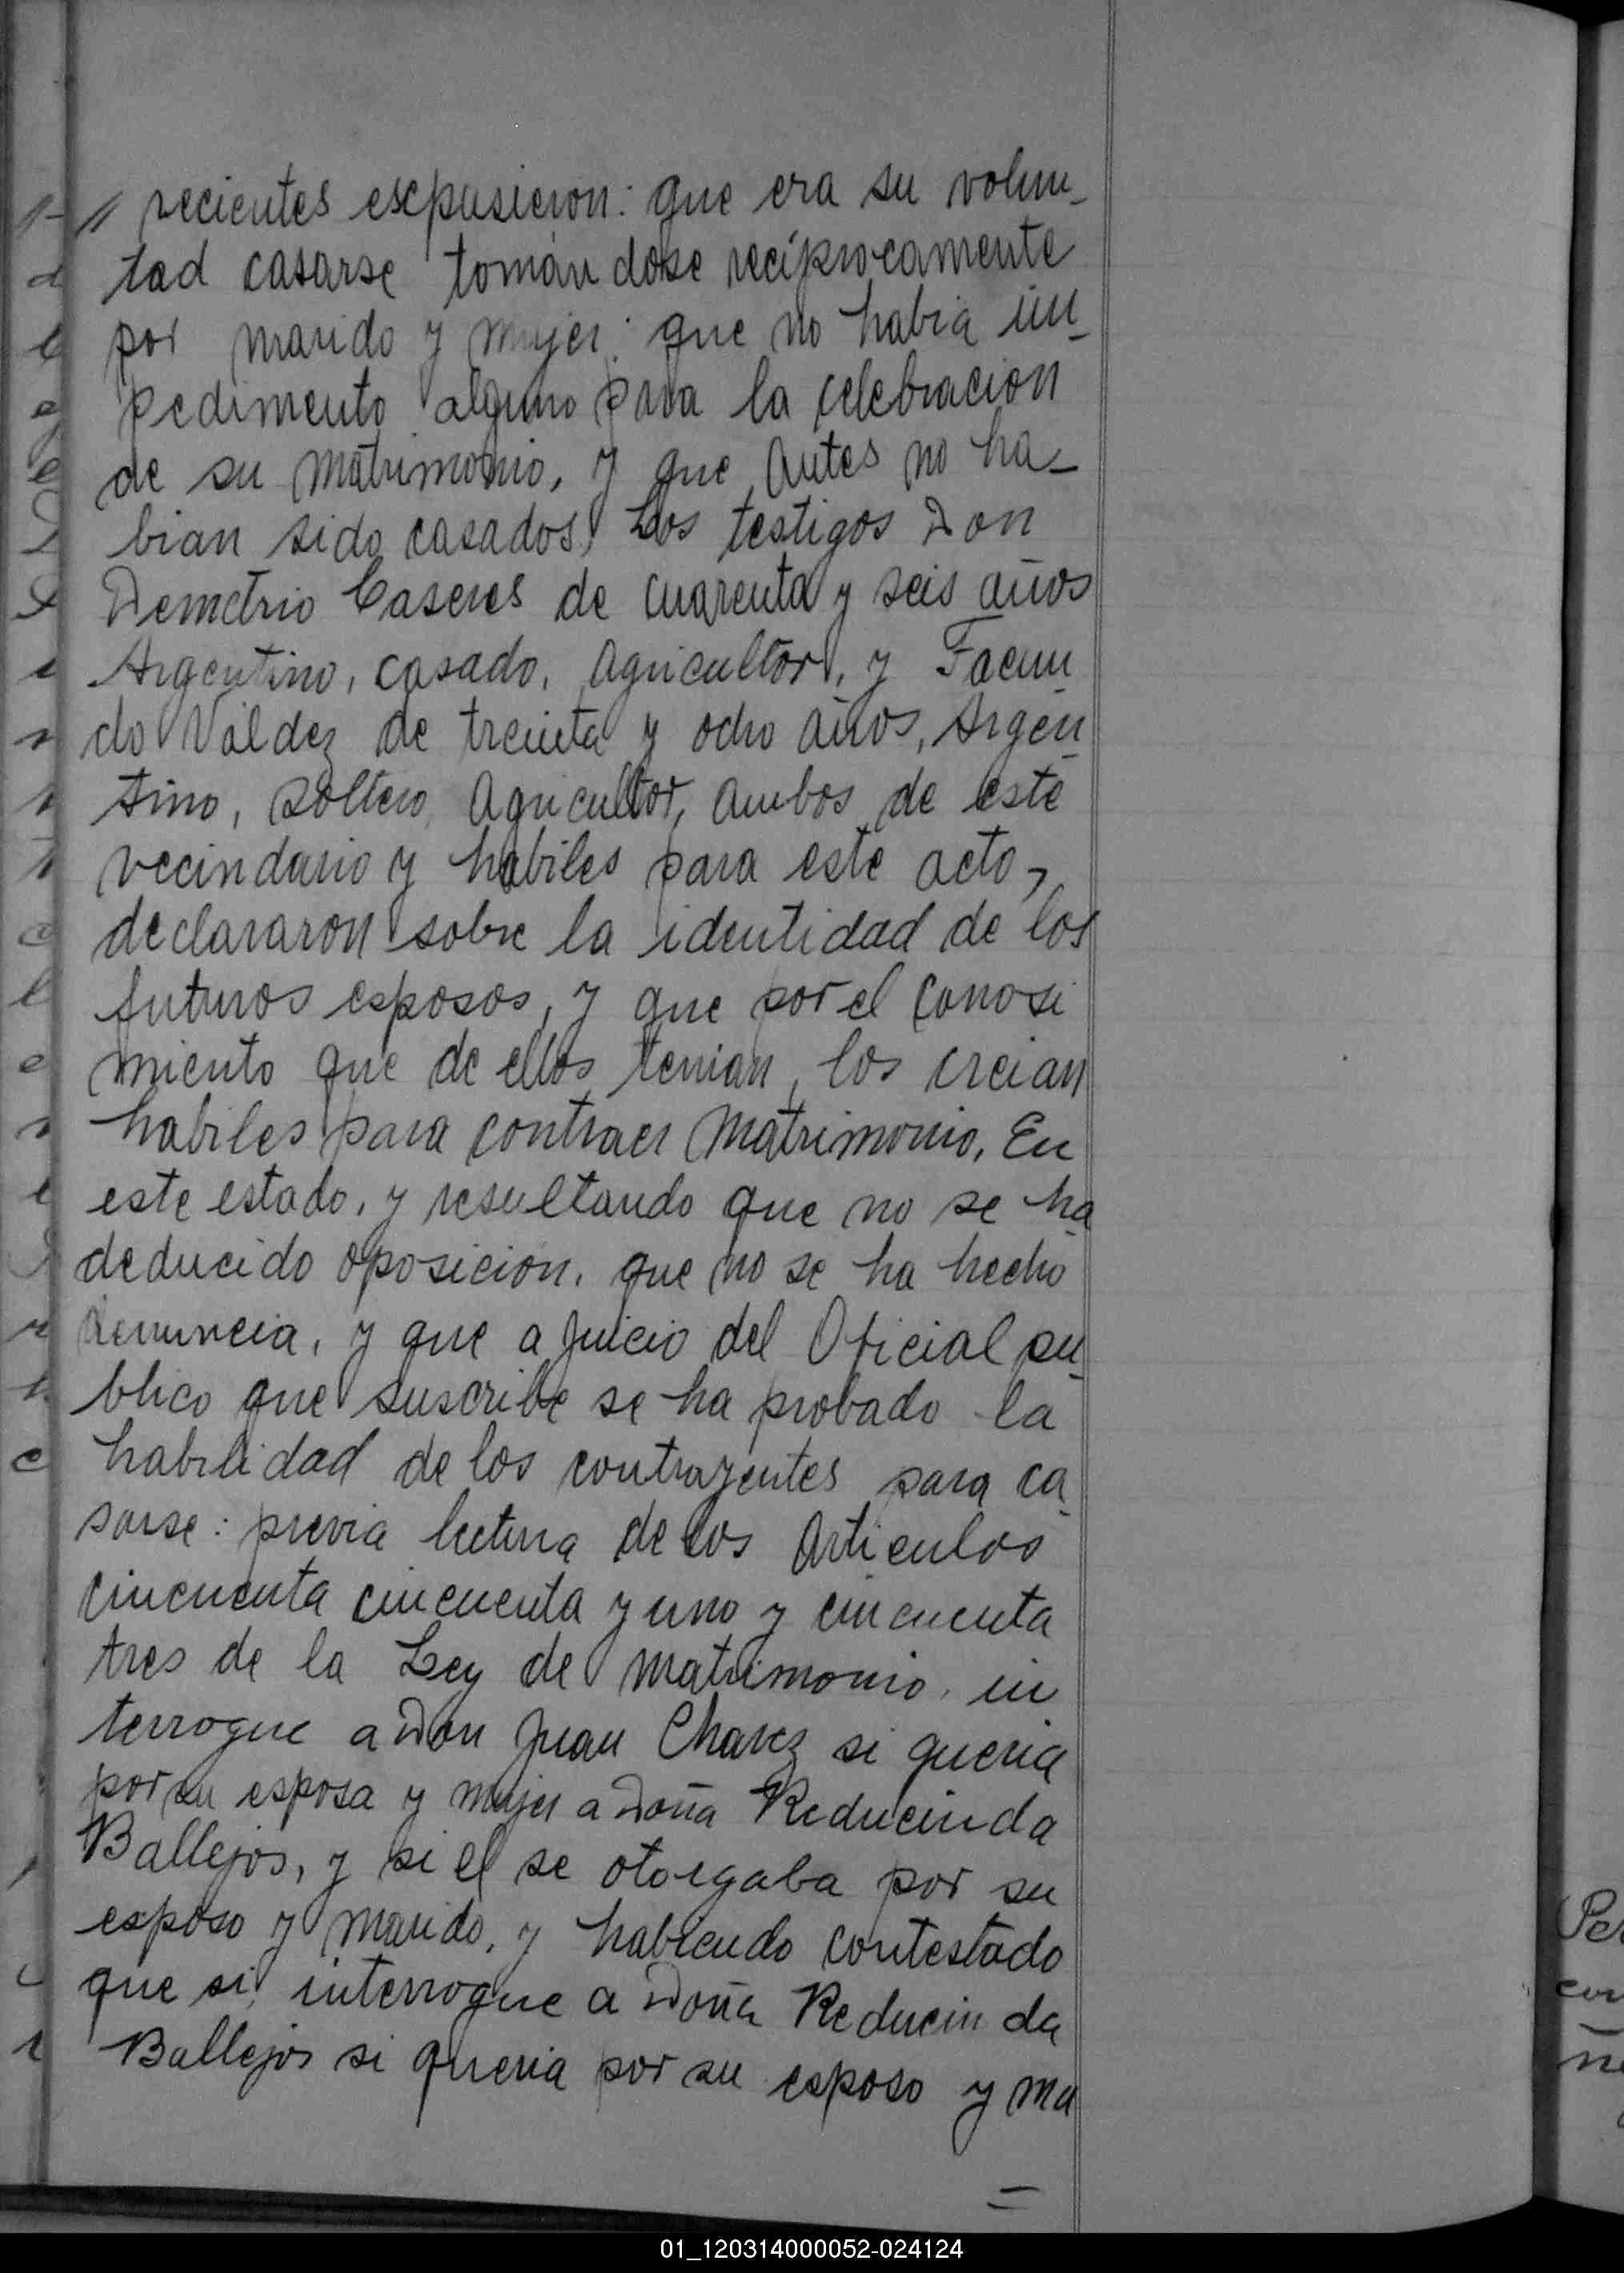 // recientes escpusieron: que era su volun_
tad casarse tomandose recíprocamente
por marido y mujer: que no habia im_
pedimento alguno para la celebracion
de su matrimonio, y que antes no ha_
bian sido casados, Los testigos Don
Demetrio Caseres de cuarenta y seis años
Argentino, casado, agricultor, y Facun
do Valdez de treinta y ocho años, Argen
tino, soltero, agricultor, ambos de este
vecindario y habiles para este acto,
declararon sobre la identidad de los
futuros esposos, y que por el conosi
miento que de ellos tenian, los creian
habiles para contraer matrimonio. En
este estado, y resultando que no se ha
deducido oposicion, que no se ha hecho
denuncia, y que a juicio del Oficial pu_
blico que suscribe se ha probado la
habilidad de los contrayentes para ca_
sarse: previa lectura de los articulos
cincuenta cincuenta y uno y cincuenta
tres de la Ley de matrimonio, in
terrogue a Don Juan Chavez si queria
por su esposa y mujer a Doña Reducinda
Ballejos, y si el se otorgaba por su
esposo y marido, y habiendo contestado
que si, interrogue a Doña Reducinda
Ballejos si queria por su esposo y ma
=
01_120314000052-024124